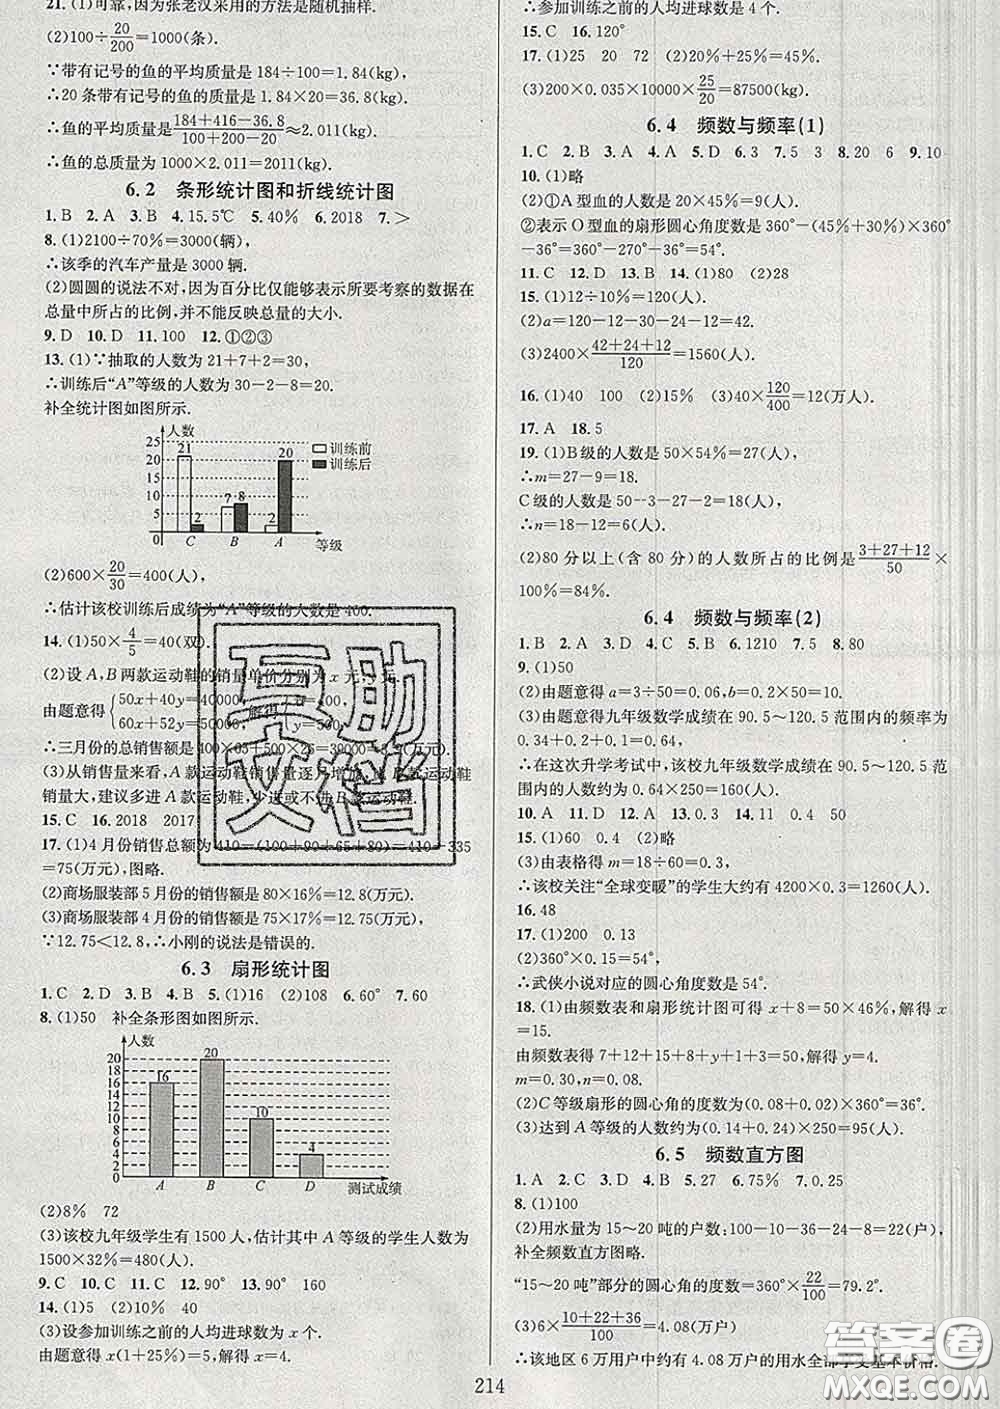 21. (1)可靠,因为张老汉采用的方法是随机抽样.
(2)100÷20/200=1000(条).
∵带有记号的鱼的平均质量是184÷100=1.84(kg),
∴20条带有记号的鱼的质量是1.84×20=36.8(kg).
∴鱼的平均质量是(184+416-36.8)/(100+200-20)≈2.011(kg).
∴鱼的总质量为1000×2.011=2011(kg).
6.2 条形统计图和折线统计图
1. B 2. A 3. B 4. 15.5℃ 5. 40% 6. 2018 7. >
8. (1)2100÷70%=3000(辆),
∴该季的汽车产量是3000辆.
(2)圆圆的说法不对,因为百分比仅能够表示所要考察的数据在
总量中所占的比例,并不能反映总量的大小.
9. D 10. D 11. 100 12. ①②③
13. (1)∵抽取的人数为21+7+2=30,
∴训练后“A”等级的人数为30-2-8=20.
补全统计图如图所示.
人数
25
20
15
10
5
0
21 2 7 8 2 20
训练前
训练后
C B A 等级
(2)600×20/30=400(人),
∴估计该校训练后成绩为“A”等级的人数是400.
14. (1)50×4/5=40(双).
(2)设A,B两款运动鞋的销量单价分别为x元,y元,
由题意得{50x+40y=40000, 60x+52y=50000. 解得 y=500.
∴三月份的总销售额是400×65+500×26=39000=3.9(万元).
(3)从销售量来看,A款运动鞋销售量逐月增加,
销量大,建议多进A款运动鞋,少进或不进B款运动鞋.
15. C 16. 2018 2017
17. (1)4月份销售总额为410-(100+90+65+80)=410-335
=75(万元).图略.
(2)商场服装部5月份的销售额是80×16%=12.8(万元).
(3)商场服装部4月份的销售额是75×17%=12.75(万元),
∵12.75<12.8,∴小刚的说法是错误的.
6.3 扇形统计图
1. C 2. D 3. B 4. B 5. (1)16 (2)108 6. 60° 7. 60
8. (1)50 补全条形图如图所示.
人数
20
18
16
14
12
10
8
6
4
2
0
16 20 10 4
A B C D 测试成绩
(2)8% 72
(3)该校九年级学生有1500人,估计其中A等级的学生人数为
1500×32%=480(人).
9. C 10. C 11. C 12. 90° 13. 90° 160
14. (1)5 (2)10% 40
(3)设参加训练之前的人均进球数为x个.
由题意得x(1+25%)=5,解得x=4.
∴参加训练之前的人均进球数是4个.
15. C 16. 120°
17. (1)25 20 72 (2)20%+25%=45%.
(3)200×0.035×10000×25/20=87500(kg).
6.4 频数与频率(1)
1. C 2. B 3. A 4. A 5. D 6. 3 7. 5 3 8. 20 6 9. 10
10. (1)略
(2)①A型血的人数是20×45%=9(人).
②表示O型血的扇形圆心角度数是360°-(45%+30%)×360°
-36°=360°-270°-36°=54°.
11. C 12. D 13. B 14. (1)80 (2)28
15. (1)12÷10%=120(人).
(2)a=120-30-24-12-12=42.
(3)2400×(42+24+12)/120=1560(人).
16. (1)40 100 (2)15% (3)40×120/400=12(万人).
17. A 18. 5
19. (1)B级的人数是50×54%=27(人).
∴m=27-9=18.
C级的人数是50-3-27-2=18(人),
∴n=18-12=6(人).
(2)80分以上(含80分)的人数所占的比例是(3+27+12)/50×
100%=84%.
6.4 频数与频率(2)
1. B 2. A 3. D 4. C 5. B 6. 1210 7. 5 8. 80
9. (1)50
(2)由题意得a=3÷50=0.06,b=0.2×50=10.
(3)由题意得九年级数学成绩在90.5~120.5范围内的频率为
0.34+0.2+0.1=0.64,
∴在这次升学考试中,该校九年级数学成绩在90.5~120.5范
围内的人数约为0.64×250=160(人).
10. A 11. C 12. A 13. 0.3 14. 11 0.4 50
15. (1)60 0.4 (2)略
(3)由表格得m=18÷60=0.3,
∴该校关注“全球变暖”的学生大约有4200×0.3=1260(人).
16. 48
17. (1)200 0.13
(2)360°×0.15=54°.
∴武侠小说对应的圆心角度数是54°.
18. (1)由频数表和扇形统计图可得x+8=50×46%,解得x
=15.
由频数表得7+12+15+8+y+1+3=50,解得y=4.
m=0.30,n=0.08.
(2)C等级扇形的圆心角的度数为(0.08+0.02)×360°=36°.
(3)达到A等级的人数约为(0.14+0.24)×250=95(人).
6.5 频数直方图
1. A 2. C 3. D 4. B 5. 27 6. 75% 7. 0.25
8. (1)100
(2)用水量为15~20吨的户数:100-10-36-24-8=22(户),
补全频数直方图略.
“15~20吨”部分的圆心角的度数=360°×22/100=79.2°.
(3)6×(10+22+36)/100=4.08(万户)
∴该地区6万用户中约有4.08万户的用水全部享受基本价格.
214
互助
文档
答案圈
MXQE.COM